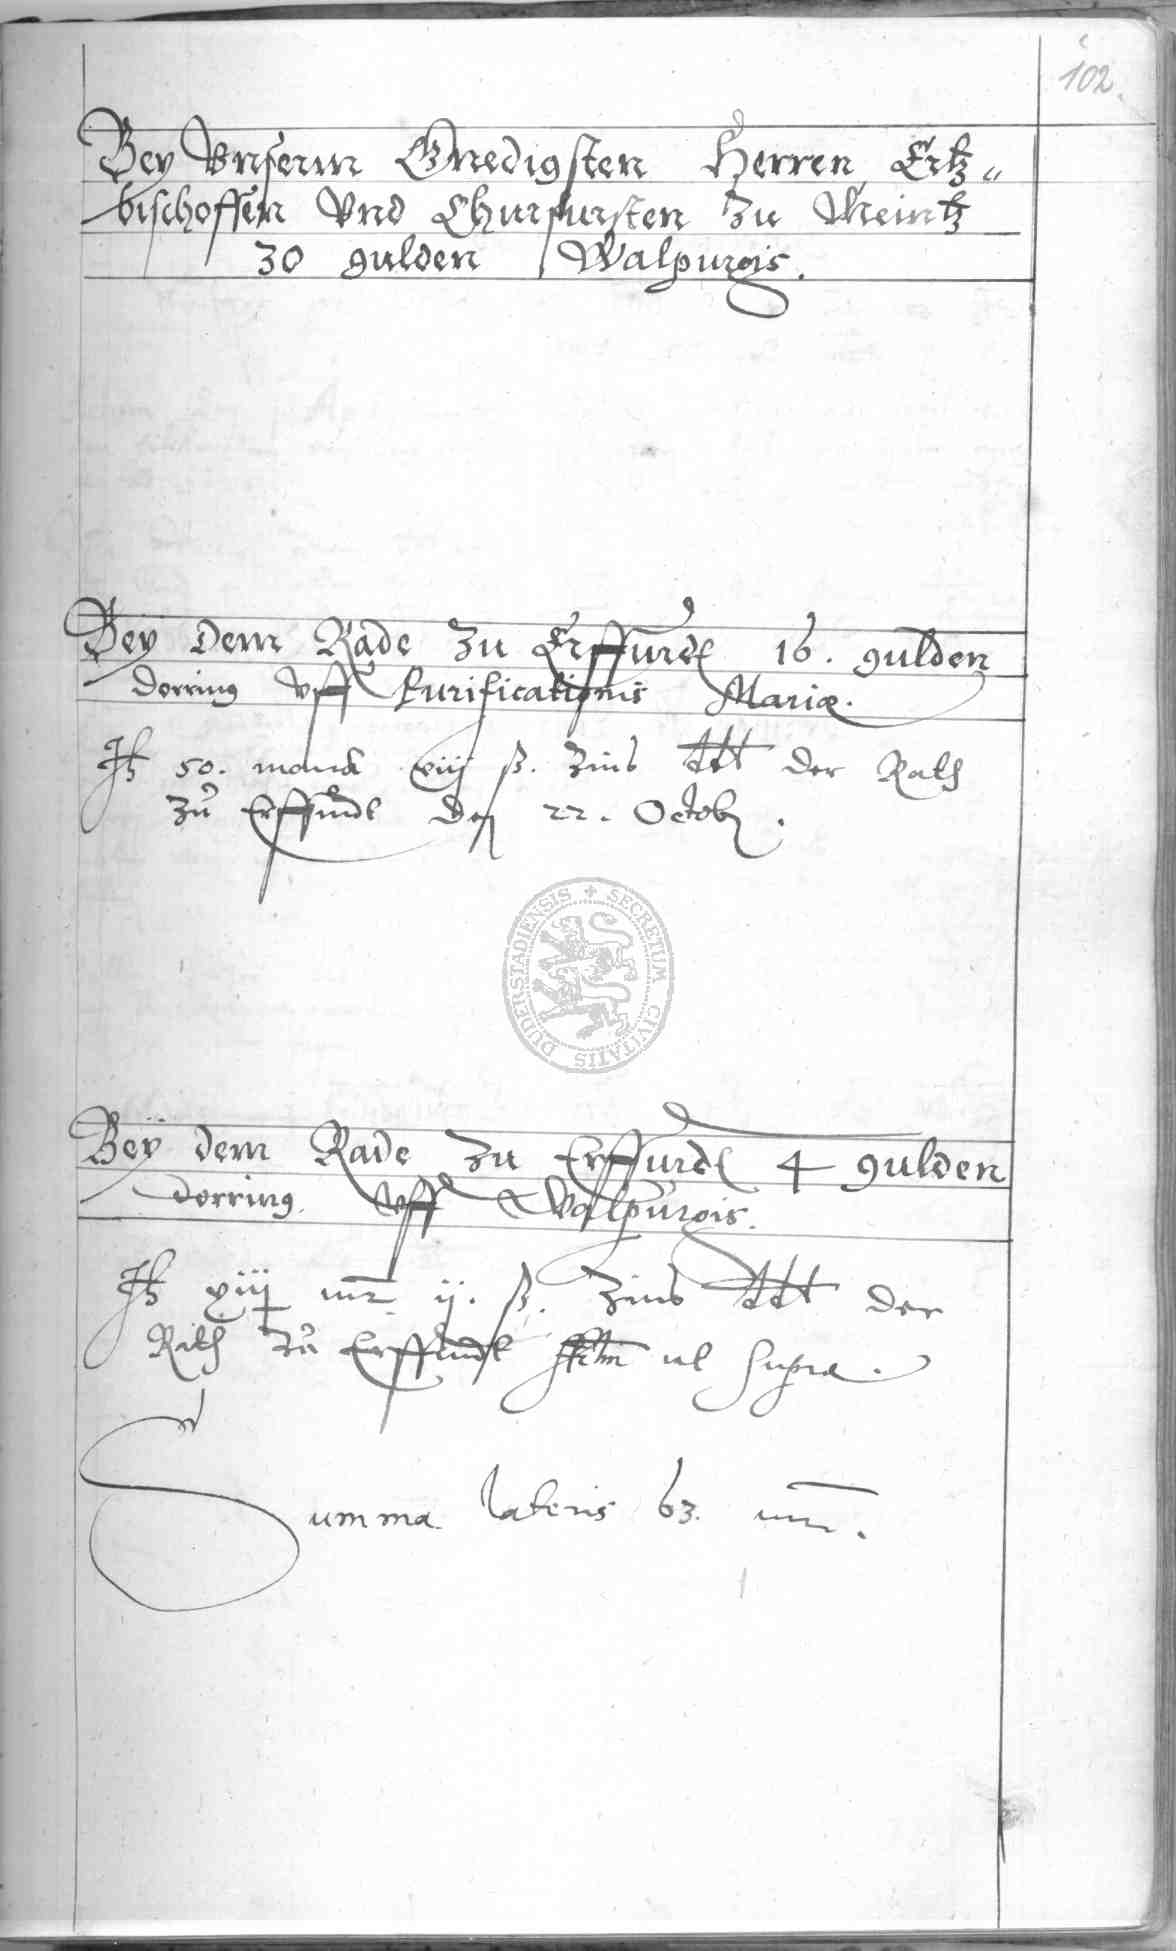 102.
Bey Vnserm Gnedigsten Herren Ertz„
bischoffen Vnd Churfursten zu Meintz
30 gulden Walpurgis.
Bey dem Rade zu Erffurdt 16. gulden
dorring vff Purificationis Mariæ.
It 50. marck xiiij ß. Zins ddt der Rath
zu Erffurdt den 22. Octob.
Bey dem Rade zu Erffurdt 4 gulden
dorring vff Walpurgis.
It xiij mr ij. ß. Zins ddt der
Rath zu Erffurdt ut supra.
Summa lateris 63. mr.
DUDERSTADIENSIS + SECRETUM CIVITATIS